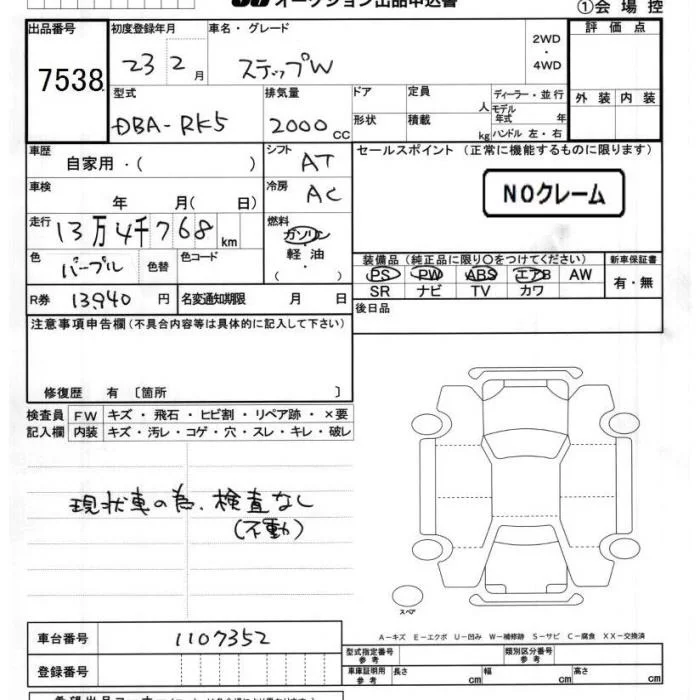 オークション出品申込書
①会場控
出品番号 7538
初度登録年月 23 2月
車名・グレード ステップW
2WD・4WD
評価点
外装 内装
型式 DBA-RK5
排気量 2000 CC
ドア
形状
定員 人
積載 kg
ディーラー・並行
モデル年式 年
ハンドル 左・右
車歴 自家用・( )
シフト AT
セールスポイント (正常に機能するものに限ります)
NOクレーム
車検 年 月( 日)
冷房 AC
走行 13万4千768 km
燃料 ガソリン 軽油 ・ ( )
色 パープル 色替
色コード
装備品(純正品に限り○をつけてください)
PS PW ABS エアB AW
SR ナビ TV カワ
新車保証書
有・無
R券 13940 円
名変通知期限 月 日
後日品
注意事項申告欄(不具合内容等は具体的に記入して下さい)
修復歴 有 〔箇所 〕
検査員記入欄
FW キズ・飛石・ヒビ割・リペア跡・×要
内装 キズ・汚レ・コゲ・穴・スレ・キレ・破レ
現状車の為、検査なし
(不動)
スペア
A-キズ E-エクボ U-凹み W-補修跡 S-サビ C-腐食 XX-交換済
車台番号 1107352
登録番号
型式指定番号 参考
類別区分番号 参考
車庫証明用 参考 長さ cm 幅 cm 高さ cm